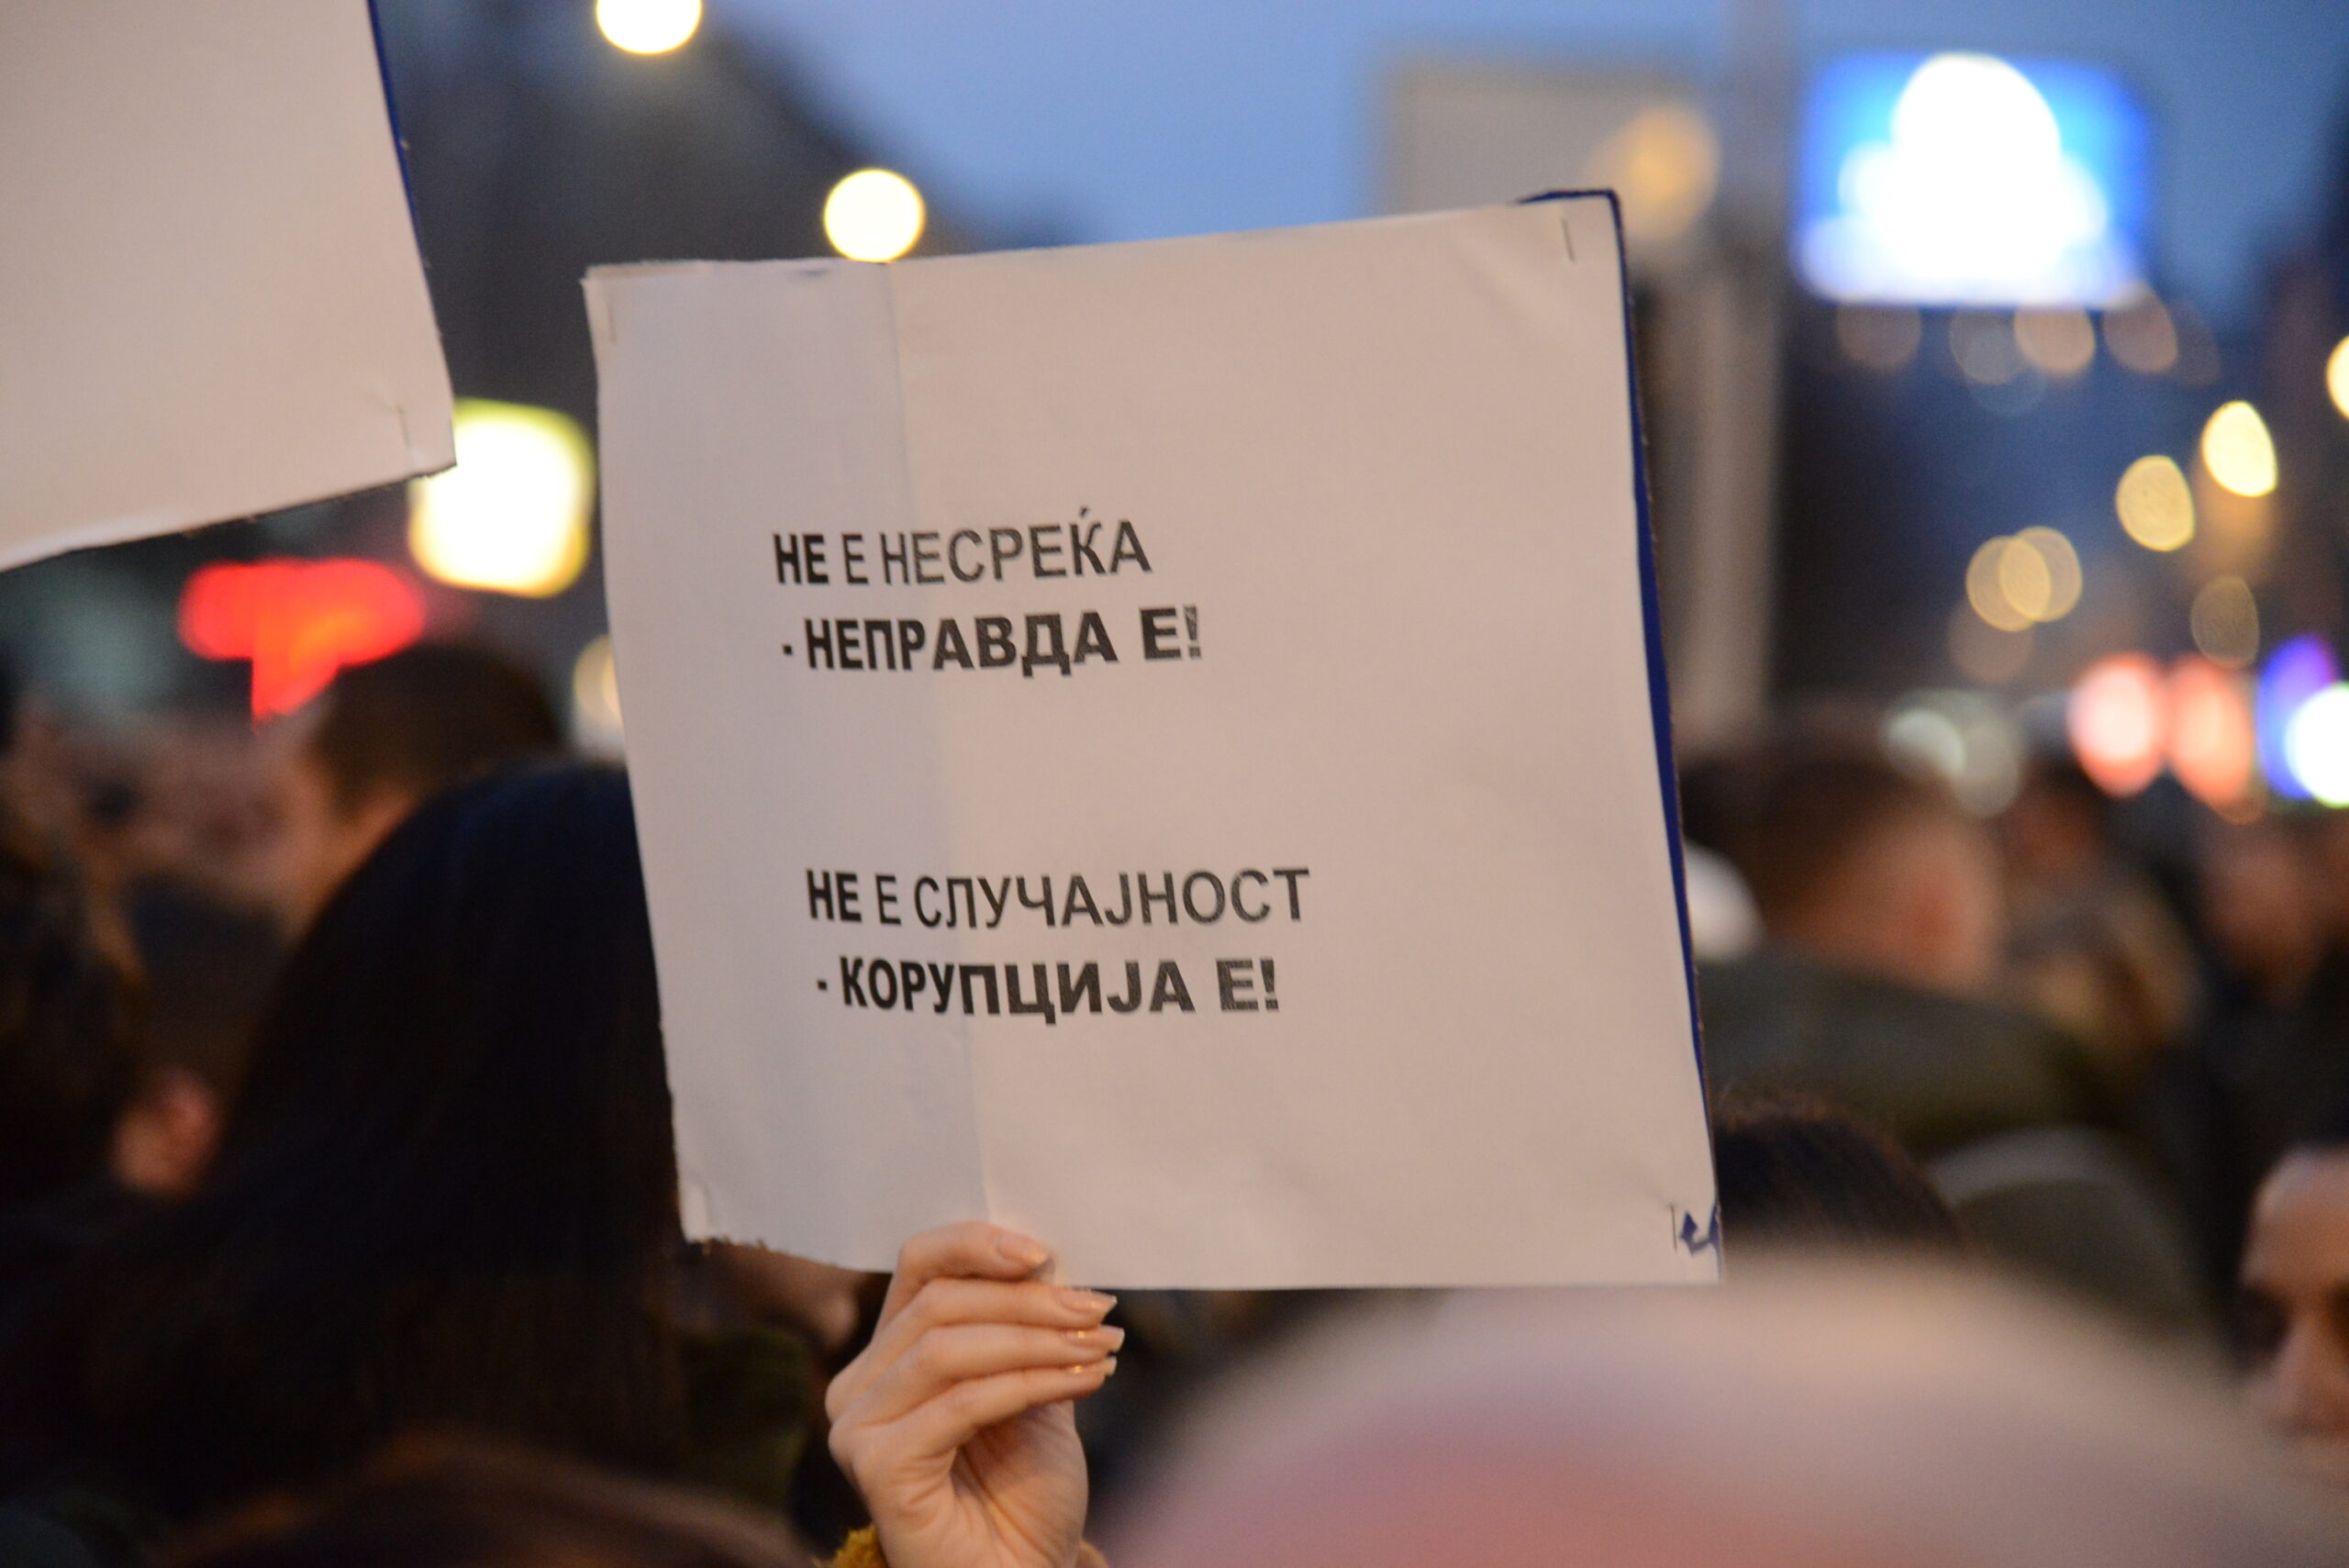 НЕ Е НЕСРЕЌА
- НЕПРАВДА Е!
НЕ Е СЛУЧАЈНОСТ
- КОРУПЦИЈА Е!